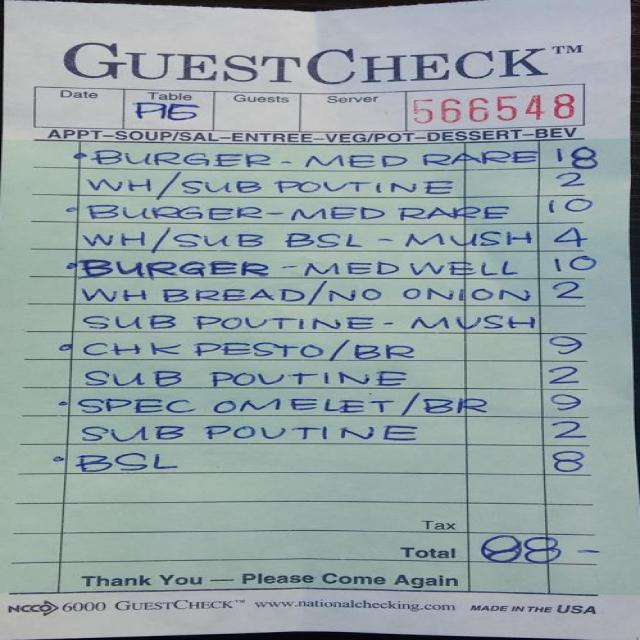 GUESTCHECK™
Date Table Guests Server
P16 566548
APPT–SOUP/SAL–ENTREE–VEG/POT–DESSERT–BEV
BURGER - MED RARE 18
WH/SUB POUTINE 2
BURGER - MED RARE 10
WH/SUB BSL - MUSH 4
BURGER - MED WELL 10
WH BREAD/NO ONION 2
SUB POUTINE - MUSH
CHK PESTO/BR 9
SUB POUTINE 2
SPEC OMELET/BR 9
SUB POUTINE 2
BSL 8
Tax
Total 88 -
Thank You — Please Come Again
NCCO 6000 GUESTCHECK™ www.nationalchecking.com MADE IN THE USA